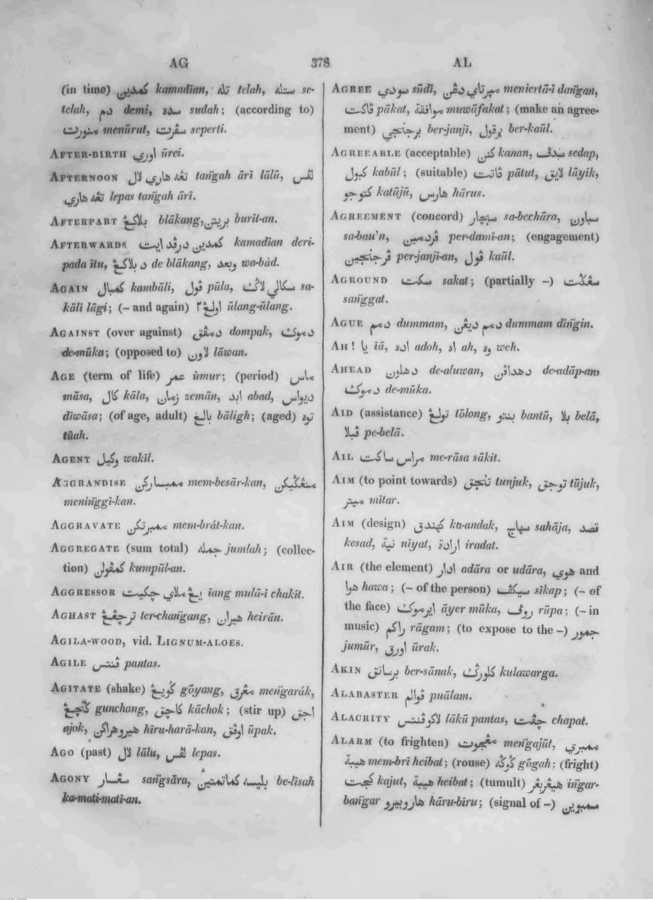 AG 378 AL
(in time) كمدين kamadīan, تله telah, ستله se-
telah, دم demi, سده sudah; (according to)
منورت menūrut, سڤرت seperti.
AFTER-BIRTH اوري ūrei.
AFTERNOON تڠه هاري لال tañgah āri lālū, لڤس
تڠه هاري lepas tañgah āri.
AFTERPART بلاكڠ blākang, بريتن burit-an.
AFTERWARDS كمدين درڤد ايت kamadīan deri-
pada ītu, د بلاكڠ de blākang, وبعد wa-bād.
AGAIN كمبال kambāli, ڤول pūla, سكالي لاڬ sa-
kāli lāgi; (– and again) اولڠ٢ ūlang-ūlang.
AGAINST (over against) دمڤق dompak, دموك
de-mūka; (opposed to) لاون lāwan.
AGE (term of life) عمر ūmur; (period) ماس
māsa, كال kāla, زمان zemān, ابد abad, ديواس
dīwāsa; (of age, adult) بالغ bāligh; (aged) توه
tūah.
AGENT وكيل wakīl.
AGGRANDISE ممبسارکن mem-besār-kan, منڠݢيکن
meniñggi-kan.
AGGRAVATE ممبرتکن mem-brāt-kan.
AGGREGATE (sum total) جمله jumlah; (collec-
tion) کمڤولن kumpūl-an.
AGGRESSOR يڠ ملاي چکيت īang mulā-i chakīt.
AGHAST ترچڠڠ ter-chañgang, هيران heirān.
AGILA-WOOD, vid. LIGNUM-ALOES.
AGILE ڤنتس pantas.
AGITATE (shake) ڬويڠ gōyang, مڠرق meñgarák,
ڬنچڠ gunchang, کاچق kāchok; (stir up) اجق
ajok, هيروهراکن hīru-harā-kan, اوڤق ūpak.
AGO (past) لال lālu, لڤس lepas.
AGONY سڠسار sañgsāra, بليسه کماتمتين be-līsah
ka-mati-mati-an.
AGREE سودي sūdi, مرتاي دڠن meniertā-i dañgan,
ڤاکت pākat, موافقة muwāfakat; (make an agree-
ment) برجنجي ber-janji, برقول ber-kaūl.
AGREEABLE (acceptable) کنن kanan, سدڤ sedap,
کبول kabūl; (suitable) ڤاتت pātut, لايق lāyik,
کتوجو katūjū, هارس hārus.
AGREEMENT (concord) سبچار sa-bechāra, سباون
sa-bau'n, ڤردمين per-dami-an; (engagement)
ڤرجنجين per-janji-an, قول kaūl.
AGROUND سکت sakat; (partially –) سڠݢت
sañggat.
AGUE دمم dummam, دمم ديڠن dummam dīñgin.
AH! يا iā, اده adoh, اه ah, وه weh.
AHEAD دهلون de-aluwan, دهداڤن de-adāp-an
دموك de-mūka.
AID (assistance) تولڠ tōlong, بنتو bantū, بلا belā,
ڤبلا pe-belā.
AIL مراس ساکت me-rāsa sākit.
AIM (to point towards) تنجق tunjuk, توجق tūjuk,
ميتر mītar.
AIM (design) کهندق ka-andak, سهاج sahāja, قصد
kesad, نية nīyat, ارادة iradat.
AIR (the element) ادار adāra or udāra, هوي and
هوا hawa; (– of the person) سيکڤ sīkap; (– of
the face) ايرموك āyer mūka, روڤ rūpa; (– in
music) راݢم rāgam; (to expose to the –) جمور
jumūr, اورق ūrak.
AKIN برسانق ber-sānak, کلورݢ kulawarga.
ALABASTER ڤوالم puālam.
ALACRITY لاکوڤنتس lākū pantas, چڤت chapat.
ALARM (to frighten) مڠجوت meñgajūt, ممبري
هيبة mem-brī heibat; (rouse) ݢوݢه gūgah; (fright)
کجت kajut, هيبة heibat; (tumult) هيڠربڠر iñgar-
bañgar هاروبيرو hāru-biru; (signal of –) سمبوين